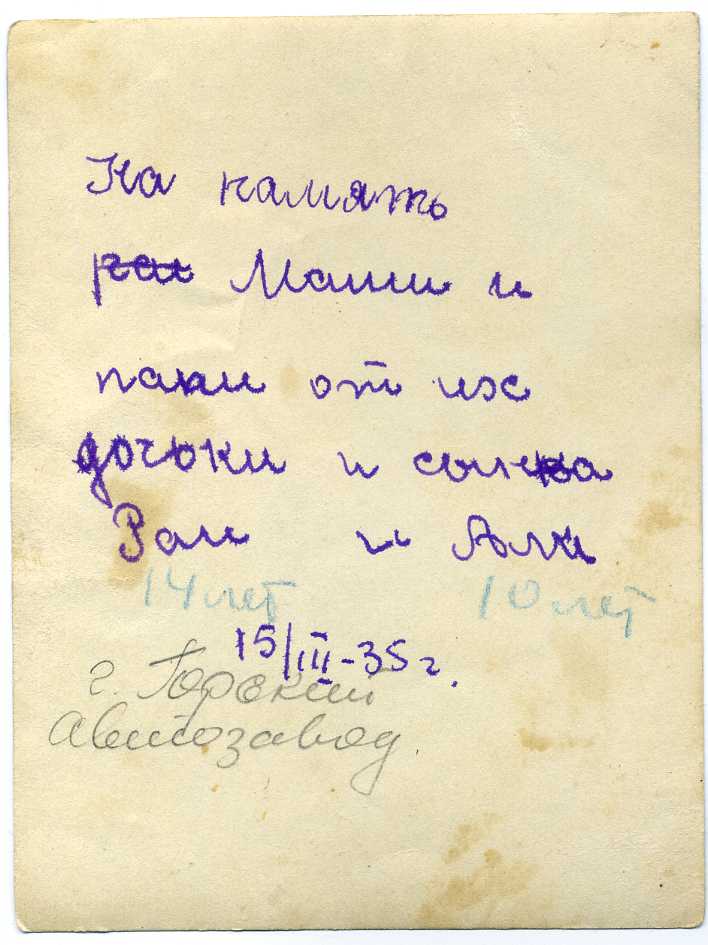 На память
Мами и
папи от их
дочьки и сынка
Раи и Али
14 лет 10 лет
15/III-35 г.
г. Горский
Автозавод.